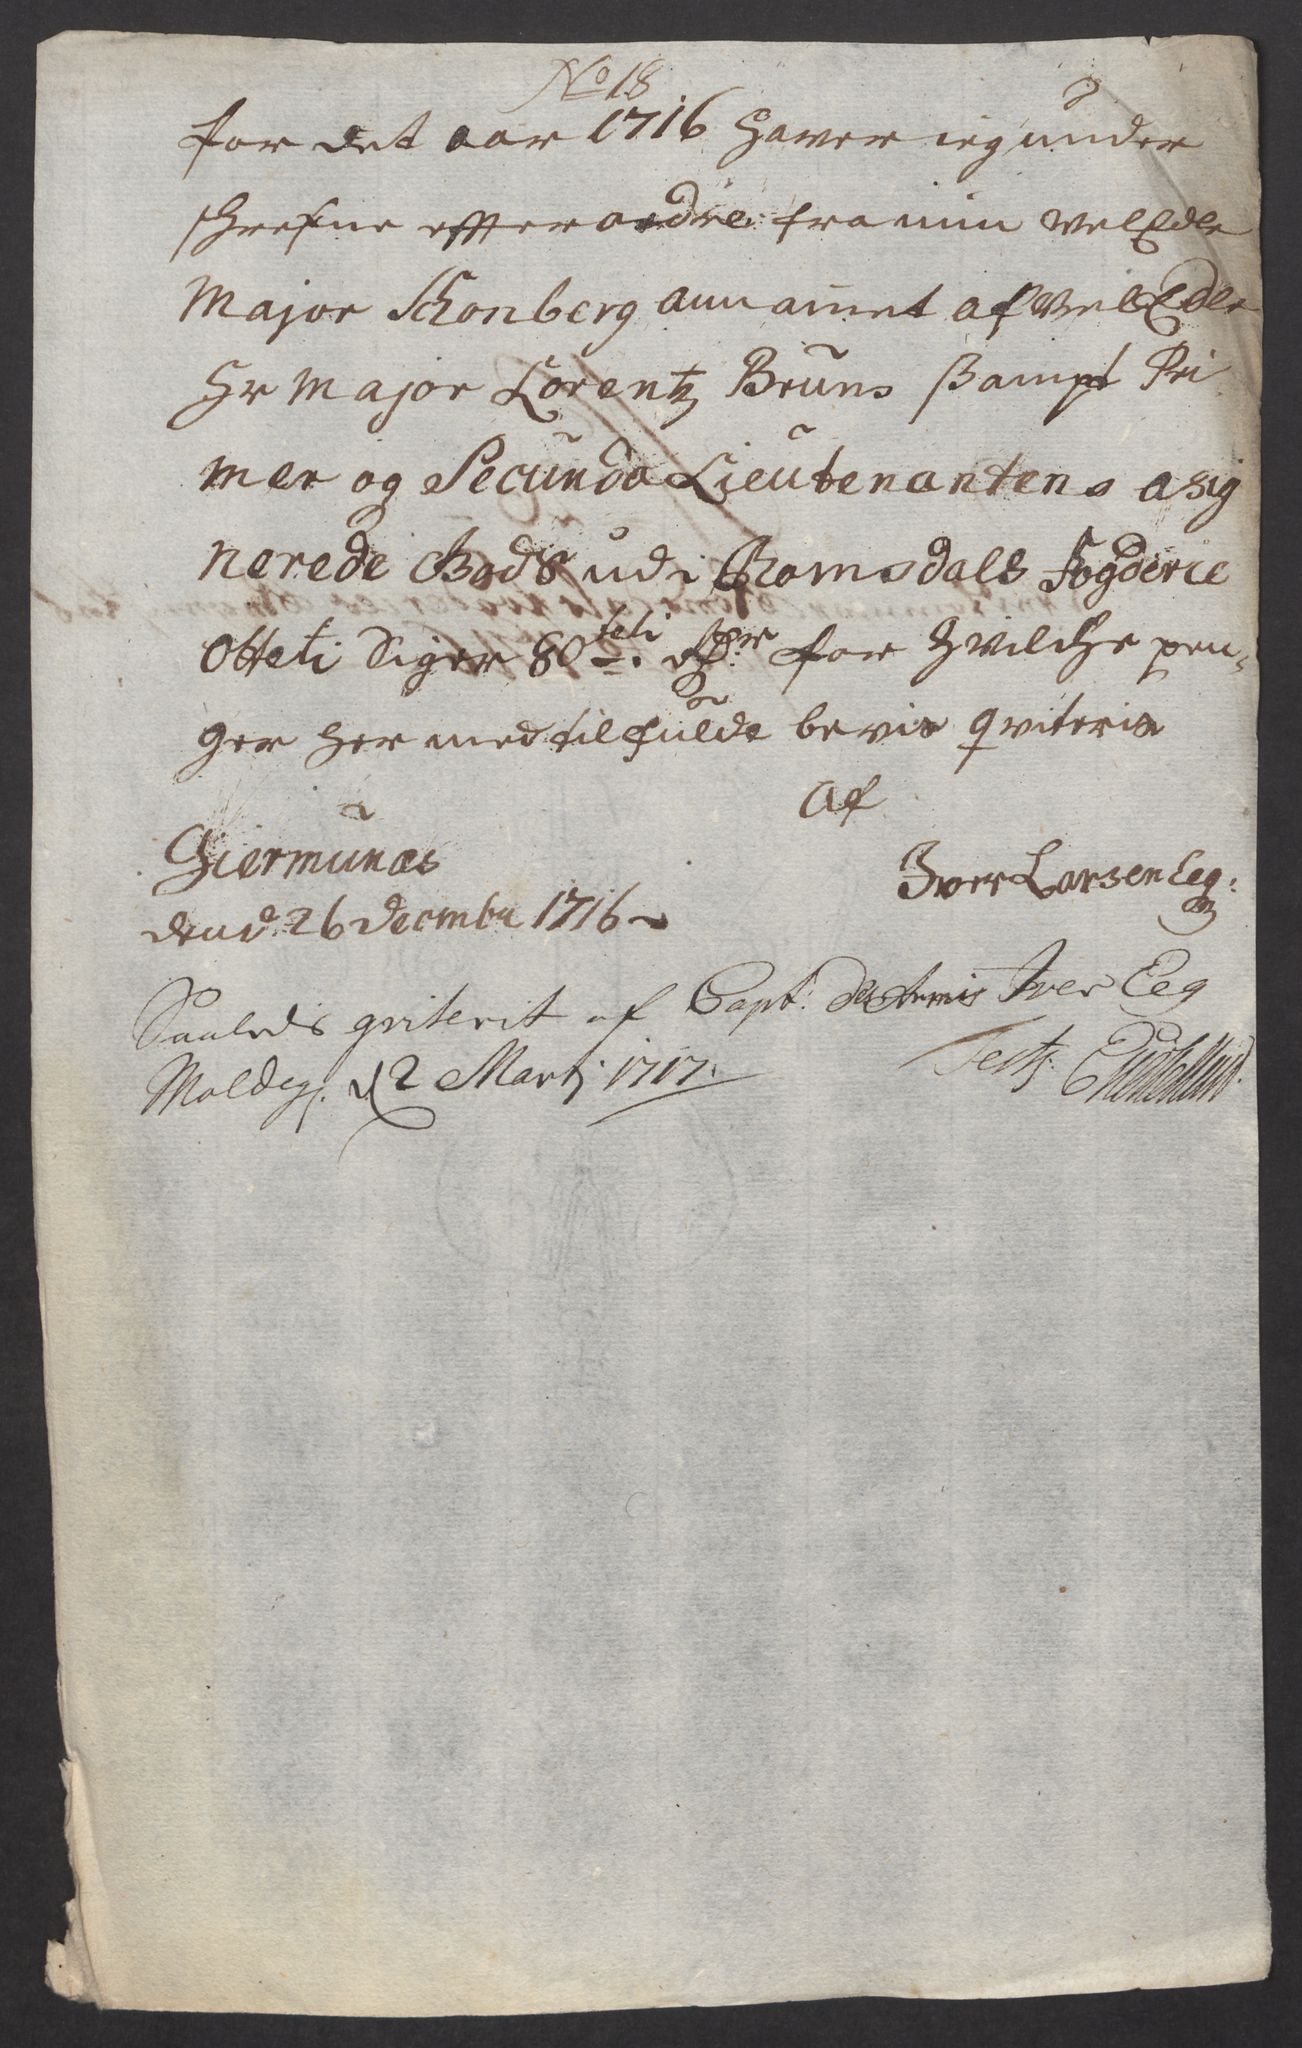 No 18
for det aar 1716 haver ieg under
skrefne effter ordre fra min velEdle
Major Schonberg annamet af velEdle
Hr Major Lorentz Bruns sampt Pri
mer og Secunda Lieutenantens asig
nerede Gods udi Romsdals Fogderie
Otteti Siger 80 teti Rdr for hvilche pen„
ger her med til fulde bevis qviteris
af
Giermunæs
dend 26 decembr 1716
Iver Larsen Eeg:
Saaleds qviterit af Capt: des Armis Iver Eeg
Molde d 2 Martj 1717.
Test: